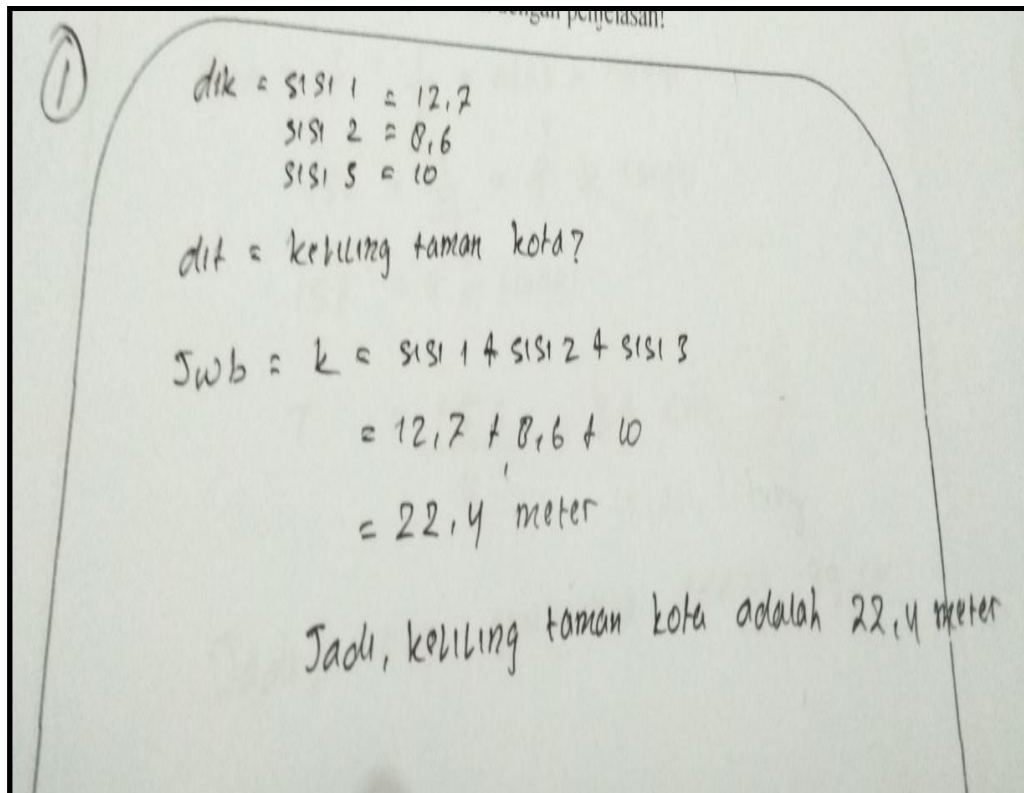 dengan penjelasan!
①
dik = sisi 1 = 12,7
sisi 2 = 8,6
sisi 3 = 10
dit = keliling taman kota?
Jwb = k = sisi 1 + sisi 2 + sisi 3
= 12,7 + 8,6 + 10
= 22,4 meter
Jadi, keliling taman kota adalah 22,4 meter